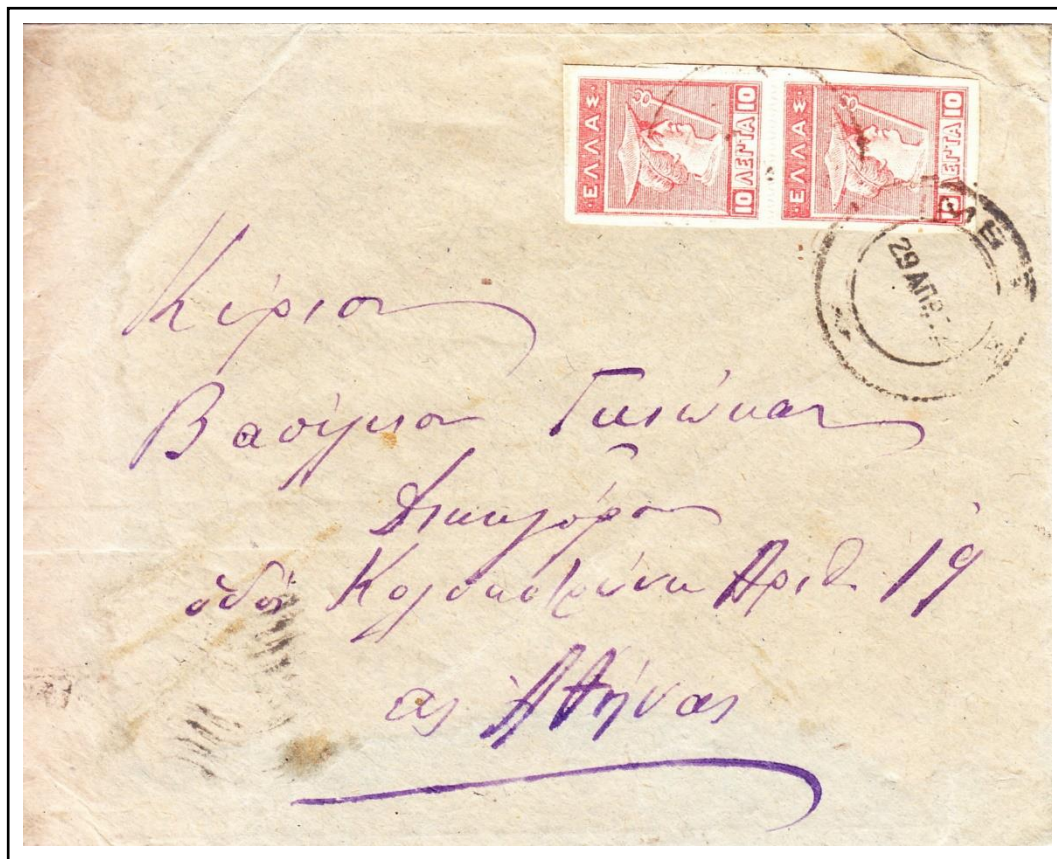 ΕΛΛΑΣ
10 ΛΕΠΤΑ 10
ΕΛΛΑΣ
10 ΛΕΠΤΑ 10
29 ΑΠΡ
Κύριον
Βασίλειον Γκιώκαν
Δικηγόρον
οδός Κολοκοτρώνη Αριθ. 19
εις Αθήνας